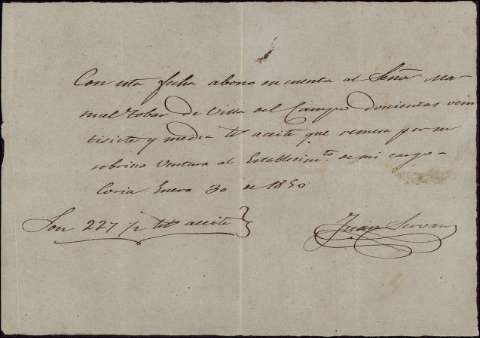 Con esta fecha abono en cuenta al Señor Ma-
nuel Tobar de Villa del Campo doscientas vein
tisiete y media lbs aceite que remesa por su
sobrino Ventura al Establecimto de mi cargo
Coria Enero 30 de 1850
Son 227 ½ lbs aceite
Juan